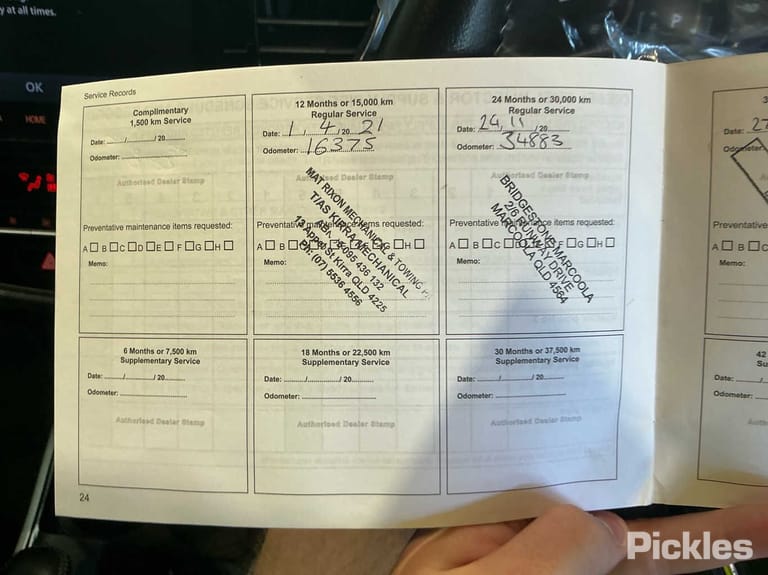 y at all times.
OK
HOME
Service Records
Complimentary
1,500 km Service
Date: ....../............/ 20.........
Odometer: ..............................
Authorised Dealer Stamp
Preventative maintenance items requested:
A □ B □ C □ D □ E □ F □ G □ H □
Memo:
12 Months or 15,000 km
Regular Service
Date: 1 / 4 / 20 21
Odometer: 16375
Authorised Dealer Stamp
MAT RIXON MECHANICAL & TOWING
T/AS KIRRA MECHANICAL
436 132
13 Appel St Kirra QLD 4225
Ph: (07) 5536 4556
Preventative maintenance items requested:
Memo:
24 Months or 30,000 km
Regular Service
Date: 24, 11 / 20
Odometer: 34883
Authorised Dealer Stamp
BRIDGESTONE MARCOOLA
2/6 RUNWAY DRIVE
MARCOOLA QLD 4564
Preventative maintenance items requested:
Memo:
Date: 2
Odometer:
Preventative
A □ B □ C
Memo:
6 Months or 7,500 km
Supplementary Service
Date: ....../............/ 20.........
Odometer: ..............................
Authorised Dealer Stamp
18 Months or 22,500 km
Supplementary Service
Date: ....../............/ 20.........
Odometer: ..............................
Authorised Dealer Stamp
30 Months or 37,500 km
Supplementary Service
Date: ....../............/ 20.........
Odometer: ..............................
Authorised Dealer Stamp
42
Su
Date:
Odometer:
24
Pickles